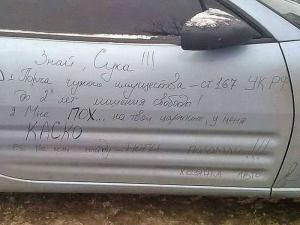 Знай, Сука !!!
1. Порча чужого имущества - ст 167 УКРФ
до 2х лет лишения свободы!
2 Мне ПОХ... на твои царапки, у меня
КАСКО
!!!
хозяйка авто